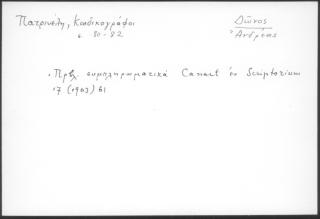 Πατρινέλη, Κωδικογράφοι
σ. 80-82
Δῶνος
Ἀνδρέας
Πρβλ. συμπληρωματικά Canart ἐν Scriptorium
17 (1963) 81